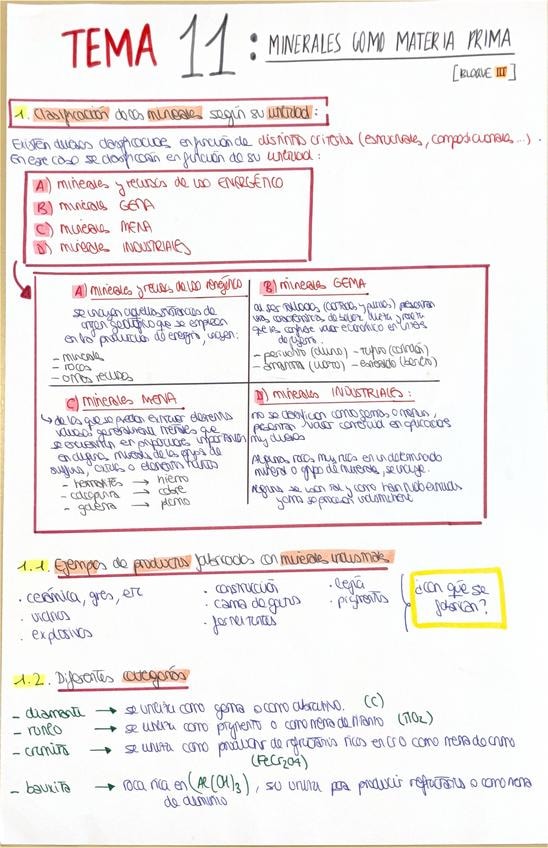 TEMA 11: MINERALES COMO MATERIA PRIMA
[BLOQUE III]
1. Clasificación de los minerales según su utilidad:
Existen diversas clasificaciones en función de distintos criterios (estructurales, composicionales...).
En este caso se clasificarán en función de su utilidad:
A) minerales y recursos de uso ENERGÉTICO
B) minerales GEMA
C) minerales MENA
D) minerales INDUSTRIALES
A) minerales y recursos de uso energético
se incluyen aquellos materiales de
origen geológico que se emplean
en la producción de energía, incluyen:
- minerales
- rocas
- otros recursos
B) minerales GEMA
al ser tallados (cortados y pulidos) presentan
unas características de color, dureza y
que les confiere valor económico en
joyería.
- peridoto (olivino) - rubí (corindón)
- (cuarzo) - esmeralda (berilo)
C) minerales MENA
de los que se pueden extraer elementos
valiosos, generalmente metales que
se encuentran en proporciones importantes
en algunos minerales de los grupos de
sulfuros, óxidos o elementos nativos
- hematites → hierro
- calcopirita → cobre
- galena → plomo
D) minerales INDUSTRIALES:
no se clasifican como gemas o menas,
presentan valor comercial en aplicaciones
muy diversas
Algunas rocas muy ricas en un determinado
mineral o grupo de minerales, se incluyen.
Algunos se usan tal y como han sido extraídos
y otros se procesan industrialmente
1.1. Ejemplos de productos fabricados con minerales industriales
· cerámica, gres, etc
· vidrios
· explosivos
· construcción
· cama de gatos
· fertilizantes
· lejía
· pigmentos
¿Con qué se
fabrican?
1.2. Diferentes categorías
- diamante → se utiliza como gema o como abrasivo. (C)
- rutilo → se utiliza como pigmento o como mena de titanio (TiO2)
- cromita → se utiliza como productor de refractarios ricos en Cr o como mena de cromo
(FeCr2O4)
- bauxita → roca rica en (Al(OH)3), se utiliza para producir refractarios o como mena
de aluminio